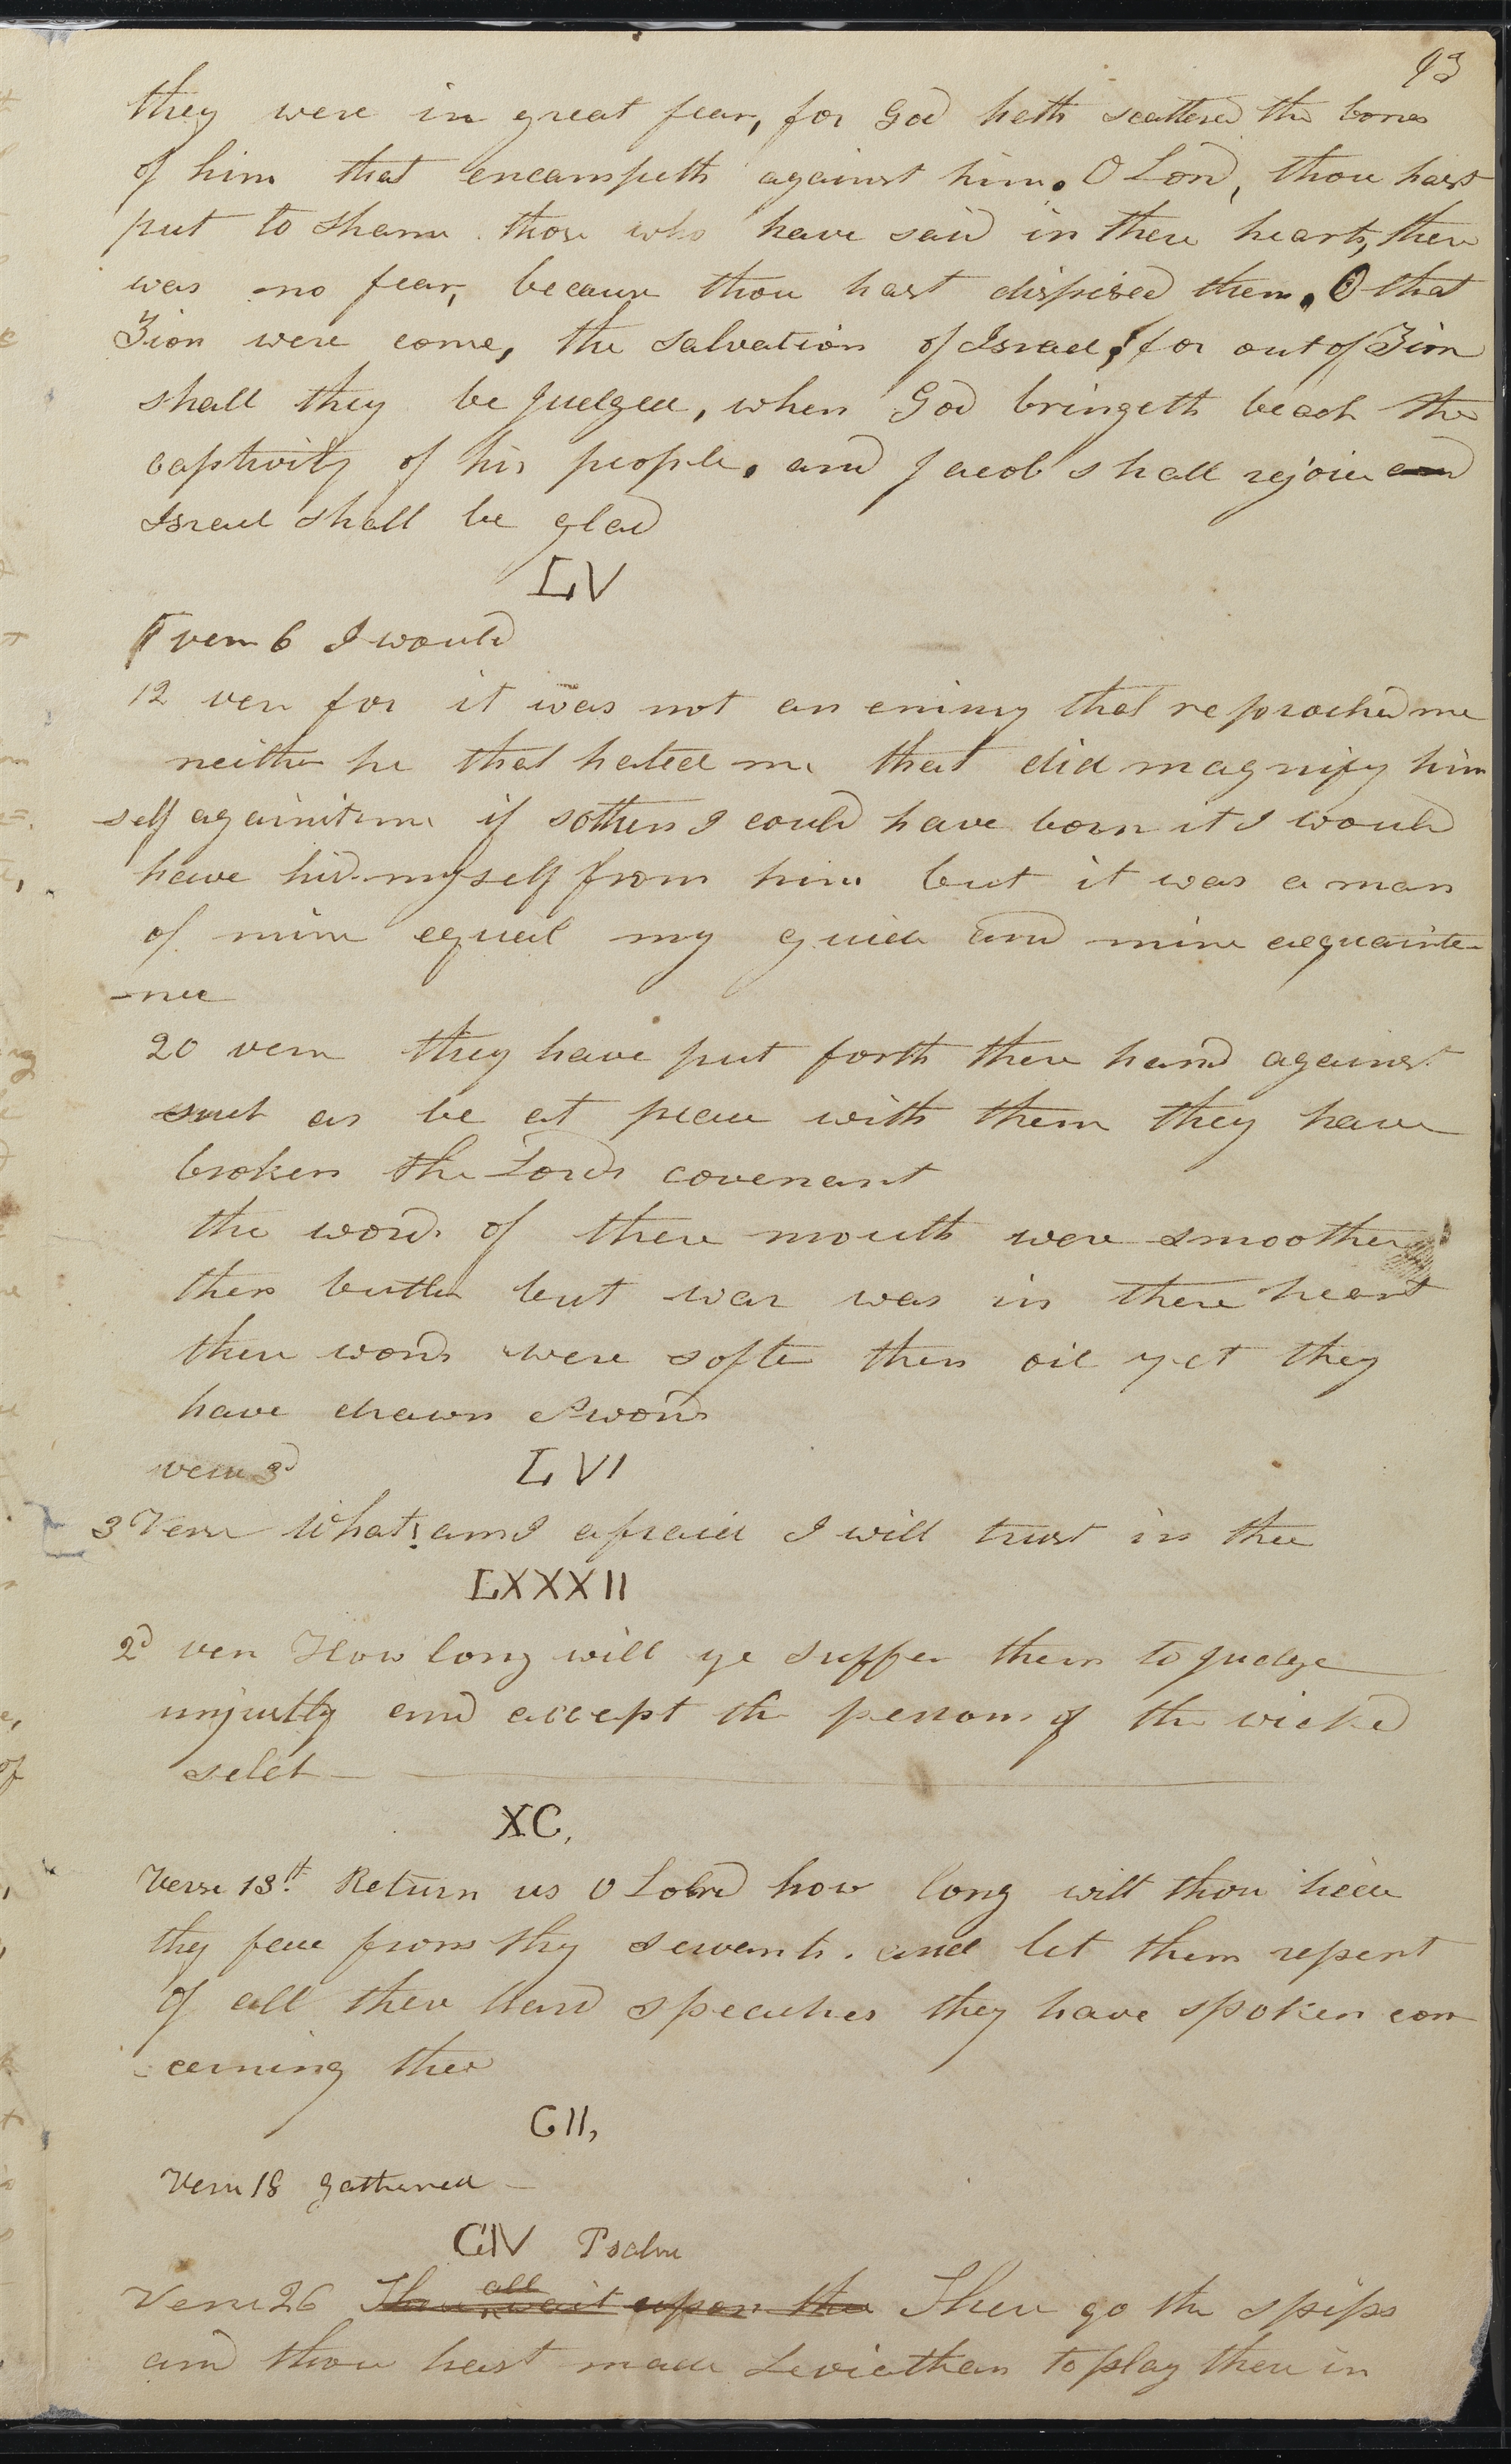 93
they were in great fear, for God hath scattered the bones
of him that encampeth against him. O Lord, thou hast
put to shame those who have said in there hearts, there
was no fear, because thou hast dispised them. O that
Zion were come, the salvation of Israel, for out of Zion
shall they be judged, when God bringeth back the
captivity of his people. and Jacob shall rejoice and
Israel shall be glad
LV
verse 6 I would
12 vers for it was not an enimy that reproached me
neither he that hated me that did magnify him
self against me if so then I could have born it I would
have hid myself from him but it was a man
of mine equal my guide and mine acquainta-
-nce
20 verse they have put forth there hand against
such as be at peace with them they have
broken the Lords covenant
the words of there mouth were smoother
then butter but war was in there heart
there words were softer then oil yet they
have drawn swords
verse 3d LVI
3 Verse What! am I afraid I will trust in thee
LXXXII
2d vers How long will ye suffer them to judge
unjustly and accept the persons of the wicked
selah
XC,
Verse 13th. Return us O Lord how long wilt thou hide
thy face from thy servants. and let them repent
of all there hard speaches they have spoken con
cerning thee
CII,
Verse 18 gathered
CIV Psalm
Verse 26 These all wait upon thee There go the ships
and thou hast made Leviathan to play there in